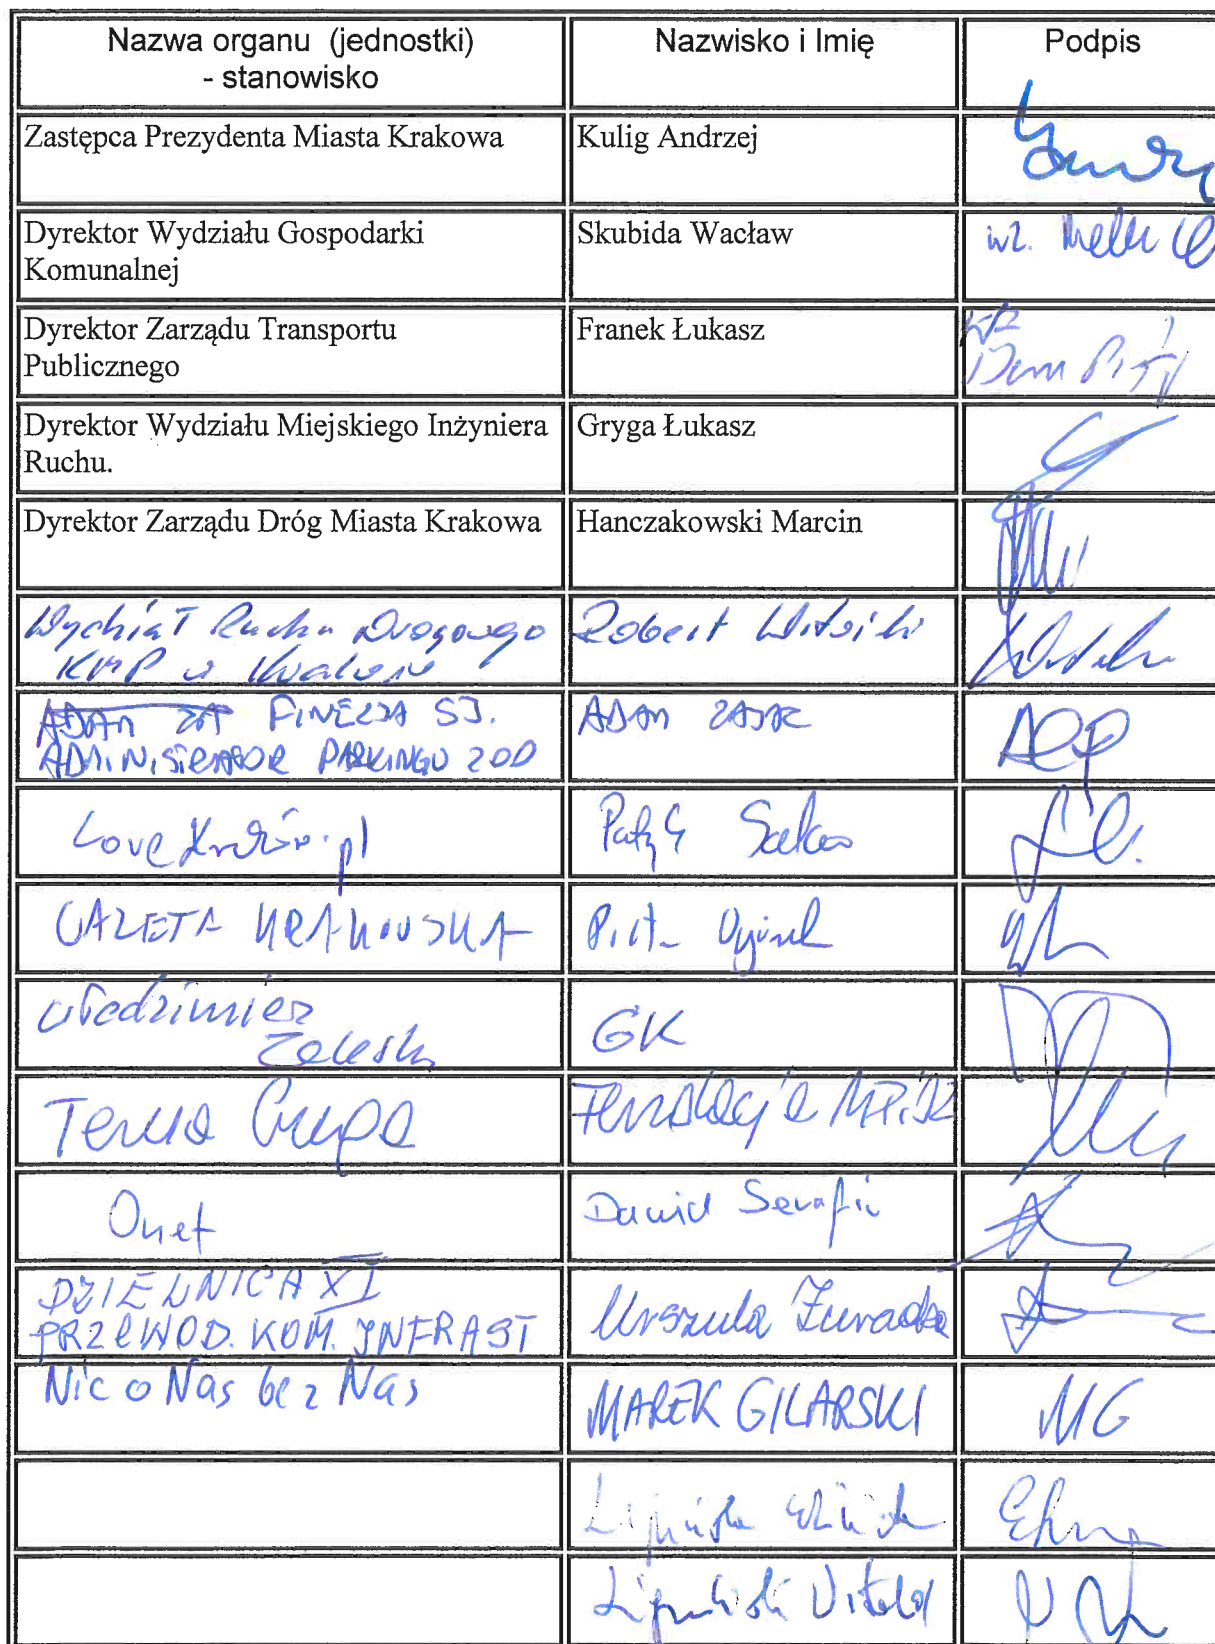 Nazwa organu (jednostki)
- stanowisko
Nazwisko i Imię
Podpis
Zastępca Prezydenta Miasta Krakowa
Kulig Andrzej
Dyrektor Wydziału Gospodarki
Komunalnej
Skubida Wacław
wz.
Dyrektor Zarządu Transportu
Publicznego
Franek Łukasz
Dyrektor Wydziału Miejskiego Inżyniera
Ruchu.
Gryga Łukasz
Dyrektor Zarządu Dróg Miasta Krakowa
Hanczakowski Marcin
Wydział Ruchu Drogowego
KMP w Krakowie
Robert
FINEZJA SJ.
ADMINISTRATOR PARKINGU
ADAM ZAJĄC
LoveKraków.pl
GAZETA KRAKOWSKA
Piotr Ogórek
Włodzimierz
GK
Fundacja
Onet
Dawid Serafin
DZIELNICA XI
PRZEWOD. KOM. INFRAST
Urszula
Nic o Nas bez Nas
MAREK GILARSKI
MG
Witold